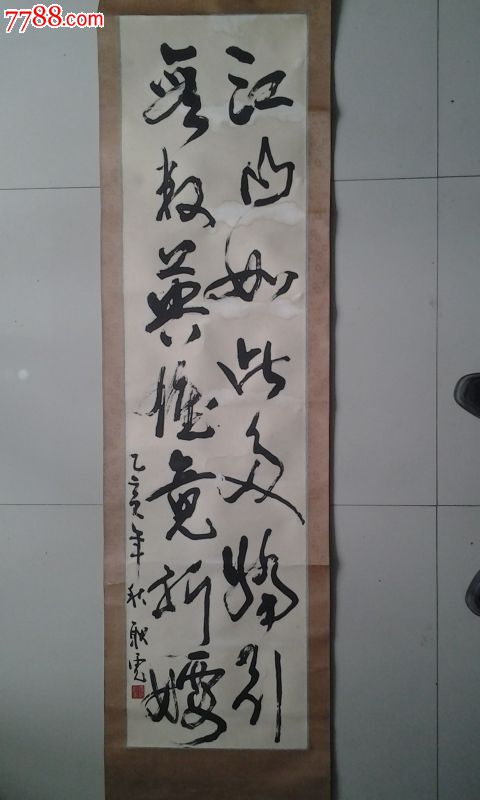 7788.com
江山如此多嬌引
無数英雄竞折腰
乙亥年秋 耿